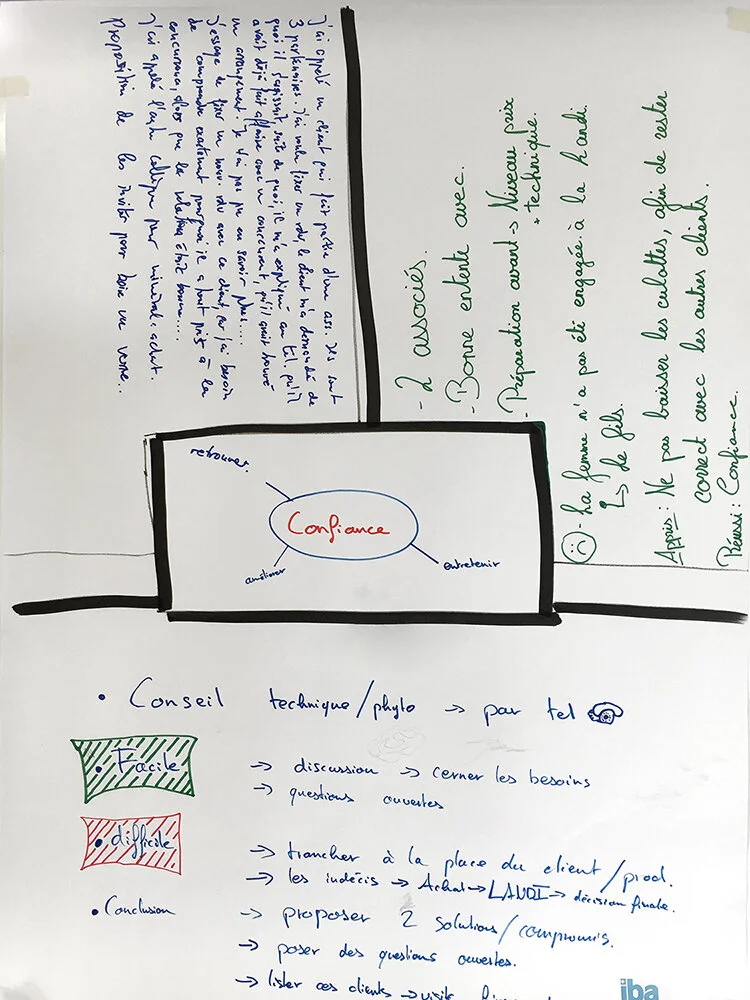 J'ai appelé un client qui fait partie d'une ass. Ils sont
3 partenaires. J'ai voulu fixer un rdv, le client m'a demandé de
quoi il s'agissait, suite de quoi, il m'a expliqué au tel. qu'il
avait déjà fait affaire avec un concurrent, qu'il avait trouvé
un arrangement. Je n'ai pas pu en savoir plus....
J'essaye de fixer un nouv. rdv avec ce client, car j'ai besoin
de comprendre exactement pourquoi il a haut prix à la
concurrence, alors que la relation était bonne....
J'ai appelé l'autre collègue pour minéral. achat.
Proposition de les inviter pour boire un verre..
- 2 associés.
- Bonne entente avec.
- Préparation avant → Niveau prix
+ technique.
- La femme n'a pas été engagée à la handi.
↳ de fils.
Appris : Ne pas baisser les culottes, afin de rester
correct avec les autres clients.
Réussi : Confiance.
retrouver.
Confiance
améliorer
entretenir
• Conseil technique/phyto → par tel
• Facile
→ discussion → cerner les besoins
→ questions ouvertes
• difficile
→ trancher à la place du client/prod.
→ les indécis → Achat → LANDI → décision finale.
• Conclusion
→ proposer 2 solutions/compromis.
→ poser des questions ouvertes.
→ lister ces clients → visite
iba